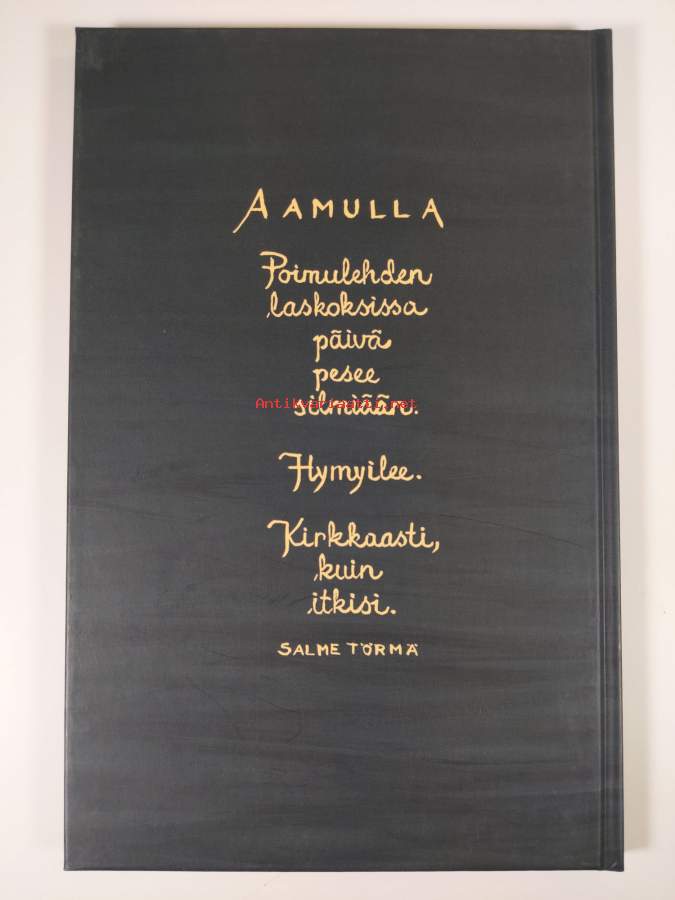 AAMULLA
Poimulehden
laskoksissa
päivä
pesee
silmiään.
Antikvariaatti.net
Hymyilee.
Kirkkaasti,
kuin
itkisi.
SALME TÖRMÄ